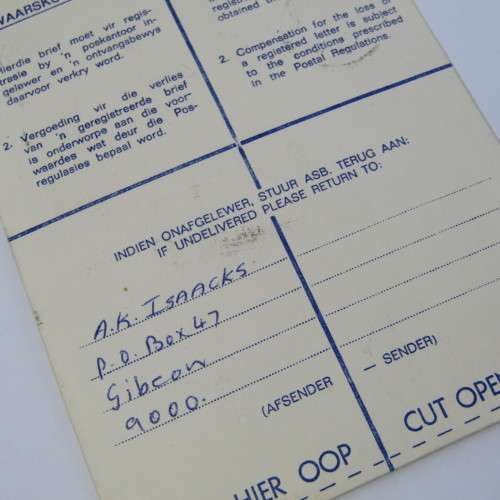 WAARSKU
Hierdie brief moet vir regis-
trasie by 'n poskantoor in-
gelewer en 'n ontvangsbewys
daarvoor verkry word.
2. Vergoeding vir die verlies
van 'n geregistreerde brief
is onderworpe aan die voor-
waardes wat deur die Pos-
regulasies bepaal word.
obtained
2. Compensation for the loss of
a registered letter is subject
to the conditions prescribed
in the Postal Regulations.
INDIEN ONAFGELEWER, STUUR ASB. TERUG AAN:
IF UNDELIVERED PLEASE RETURN TO:
A.K. ISAACKS.
P.O. Box 47
Gibeon
9000.
(AFSENDER — SENDER)
HIER OOP CUT OPEN